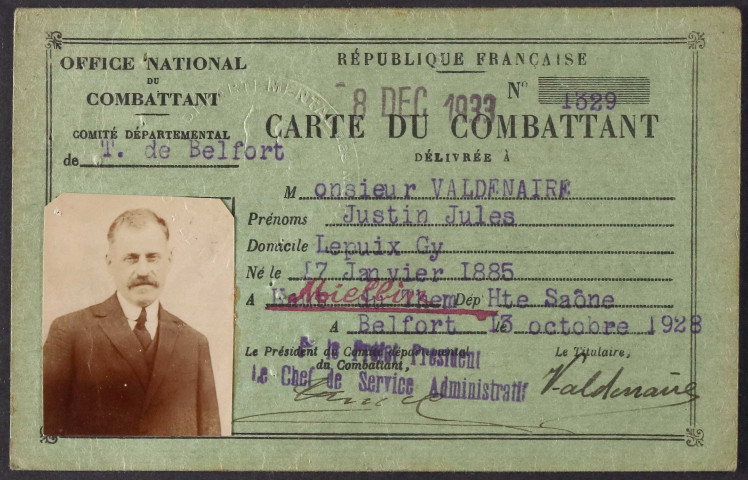 OFFICE NATIONAL
DU
COMBATTANT
COMITÉ DÉPARTEMENTAL
de T. de Belfort
RÉPUBLIQUE FRANÇAISE
8 DEC 1933
N° 1329
CARTE DU COMBATTANT
DÉLIVRÉE À
Monsieur VALDENAIRE
Prénoms Justin Jules
Domicile Lepuix Gy
Né le 17 Janvier 1885
A Dép Hte Saône
A Belfort le 13 octobre 1928
Le Président du Comité départemental
du Combattant,
P. le Préfet Président
Le Chef de Service Administratif
Le Titulaire,
Valdenaire